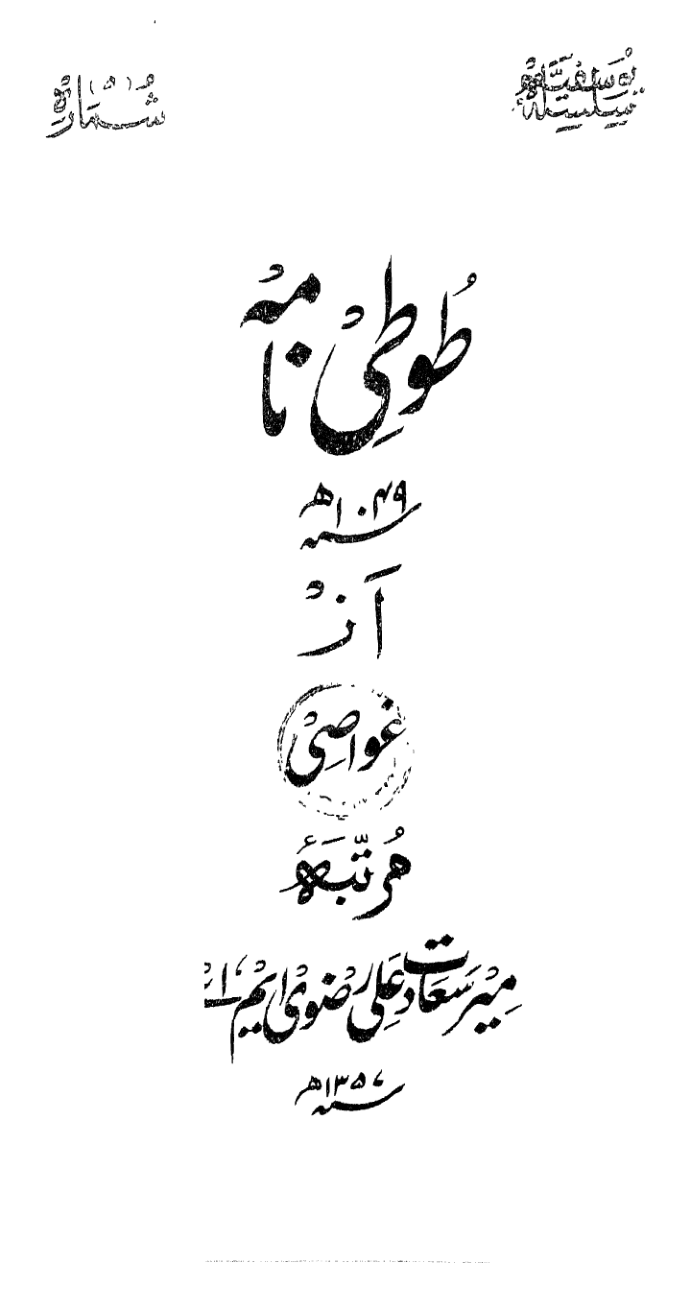 سلسلہ یوسفیہ
شمارہ (۵)
طوطی نامہ
سنہ ۱۰۴۹ھ
از
غواصی
مرتبہ
میر سعادت علی رضوی ایم، اے
سنہ ۱۳۵۷ھ